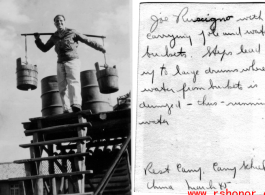 Joe Russigno with
carrying pole and water
buckets. Steps lead
up to large drums where
water from buckets is
dumped - thus - running
water
Rest Camp, Camp Schiel
China March 45
www.rshonor.com